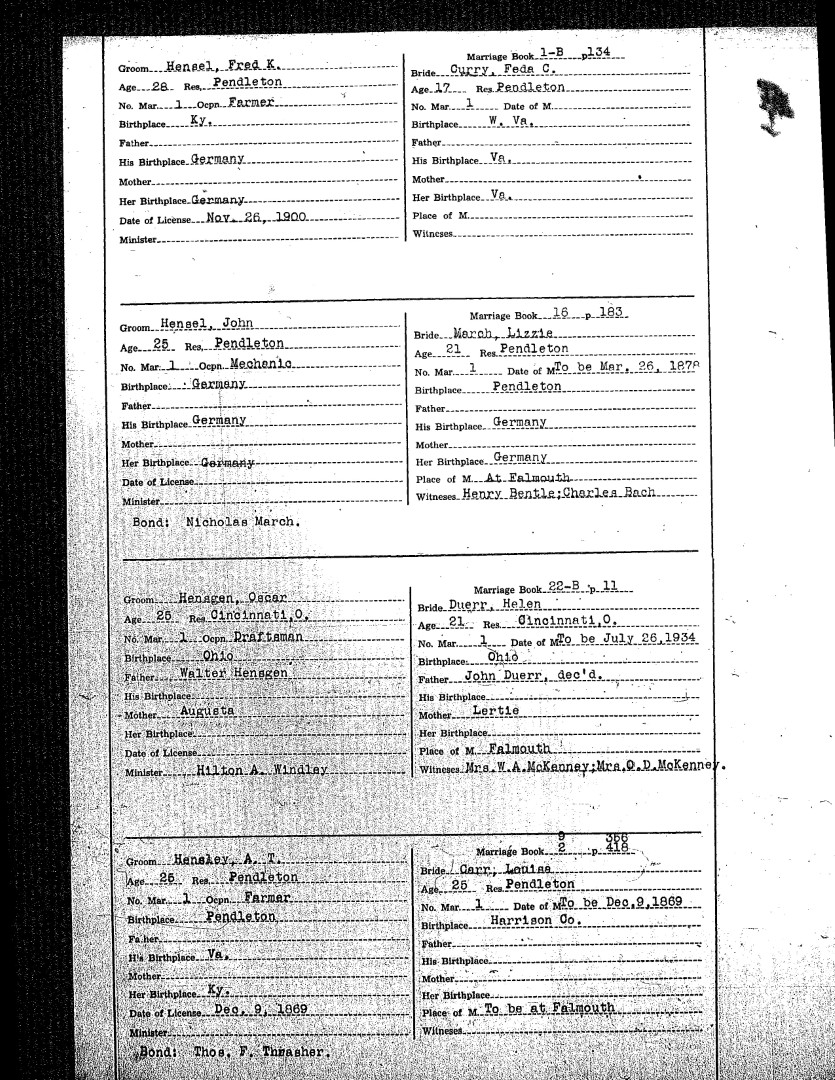 Groom Hensel, Fred K.
Age 28 Res. Pendleton
No. Mar. 1 Ocpn. Farmer
Birthplace Ky.
Father
His Birthplace Germany
Mother
Her Birthplace Germany
Date of License Nov. 26, 1900
Minister
Marriage Book 1-B p 134
Bride Curry, Feda C.
Age 17 Res. Pendleton
No. Mar. 1 Date of M.
Birthplace W. Va.
Father
His Birthplace Va.
Mother
Her Birthplace Va.
Place of M.
Witnesses
Groom Hensel, John
Age 25 Res. Pendleton
No. Mar. 1 Ocpn. Mechanic
Birthplace Germany
Father
His Birthplace Germany
Mother
Her Birthplace Germany
Date of License
Minister
Bond: Nicholas March.
Marriage Book 16 p 183
Bride March, Lizzie
Age 21 Res. Pendleton
No. Mar. 1 Date of M. To be Mar. 26, 1878
Birthplace Pendleton
Father
His Birthplace Germany
Mother
Her Birthplace Germany
Place of M. At Falmouth
Witnesses Henry Bentle; Charles Bach
Groom Hensgen, Oscar
Age 25 Res. Cincinnati, O.
No. Mar. 1 Ocpn. Draftsman
Birthplace Ohio
Father Walter Hensgen
His Birthplace
Mother Augusta
Her Birthplace
Date of License
Minister Hilton A. Windley
Marriage Book 22-B p 11
Bride Duerr, Helen
Age 21 Res. Cincinnati, O.
No. Mar. 1 Date of M. To be July 26, 1934
Birthplace Ohio
Father John Duerr, dec'd.
His Birthplace
Mother Lertie
Her Birthplace
Place of M. Falmouth
Witnesses Mrs. W.A. McKenney; Mrs. O.D. McKenney.
Groom Hensley, A. T.
Age 25 Res. Pendleton
No. Mar. 1 Ocpn. Farmer
Birthplace Pendleton
Father
His Birthplace Va.
Mother
Her Birthplace Ky.
Date of License Dec. 9, 1869
Minister
Bond: Thos. F. Thrasher.
9 366
Marriage Book 2 p 418
Bride Carr, Louisa
Age 25 Res. Pendleton
No. Mar. 1 Date of M. To be Dec. 9, 1869
Birthplace Harrison Co.
Father
His Birthplace
Mother
Her Birthplace
Place of M. To be at Falmouth
Witnesses